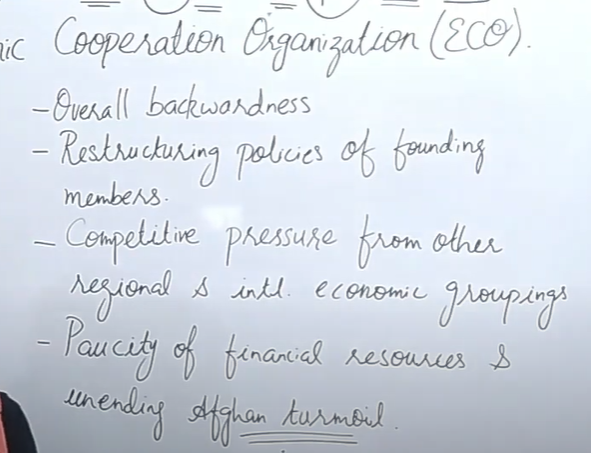 ic Cooperation Organization (ECO).
- Overall backwardness
- Restructuring policies of founding
members.
- Competitive pressure from other
regional & intl. economic groupings
- Paucity of financial resources &
unending Afghan turmoil.